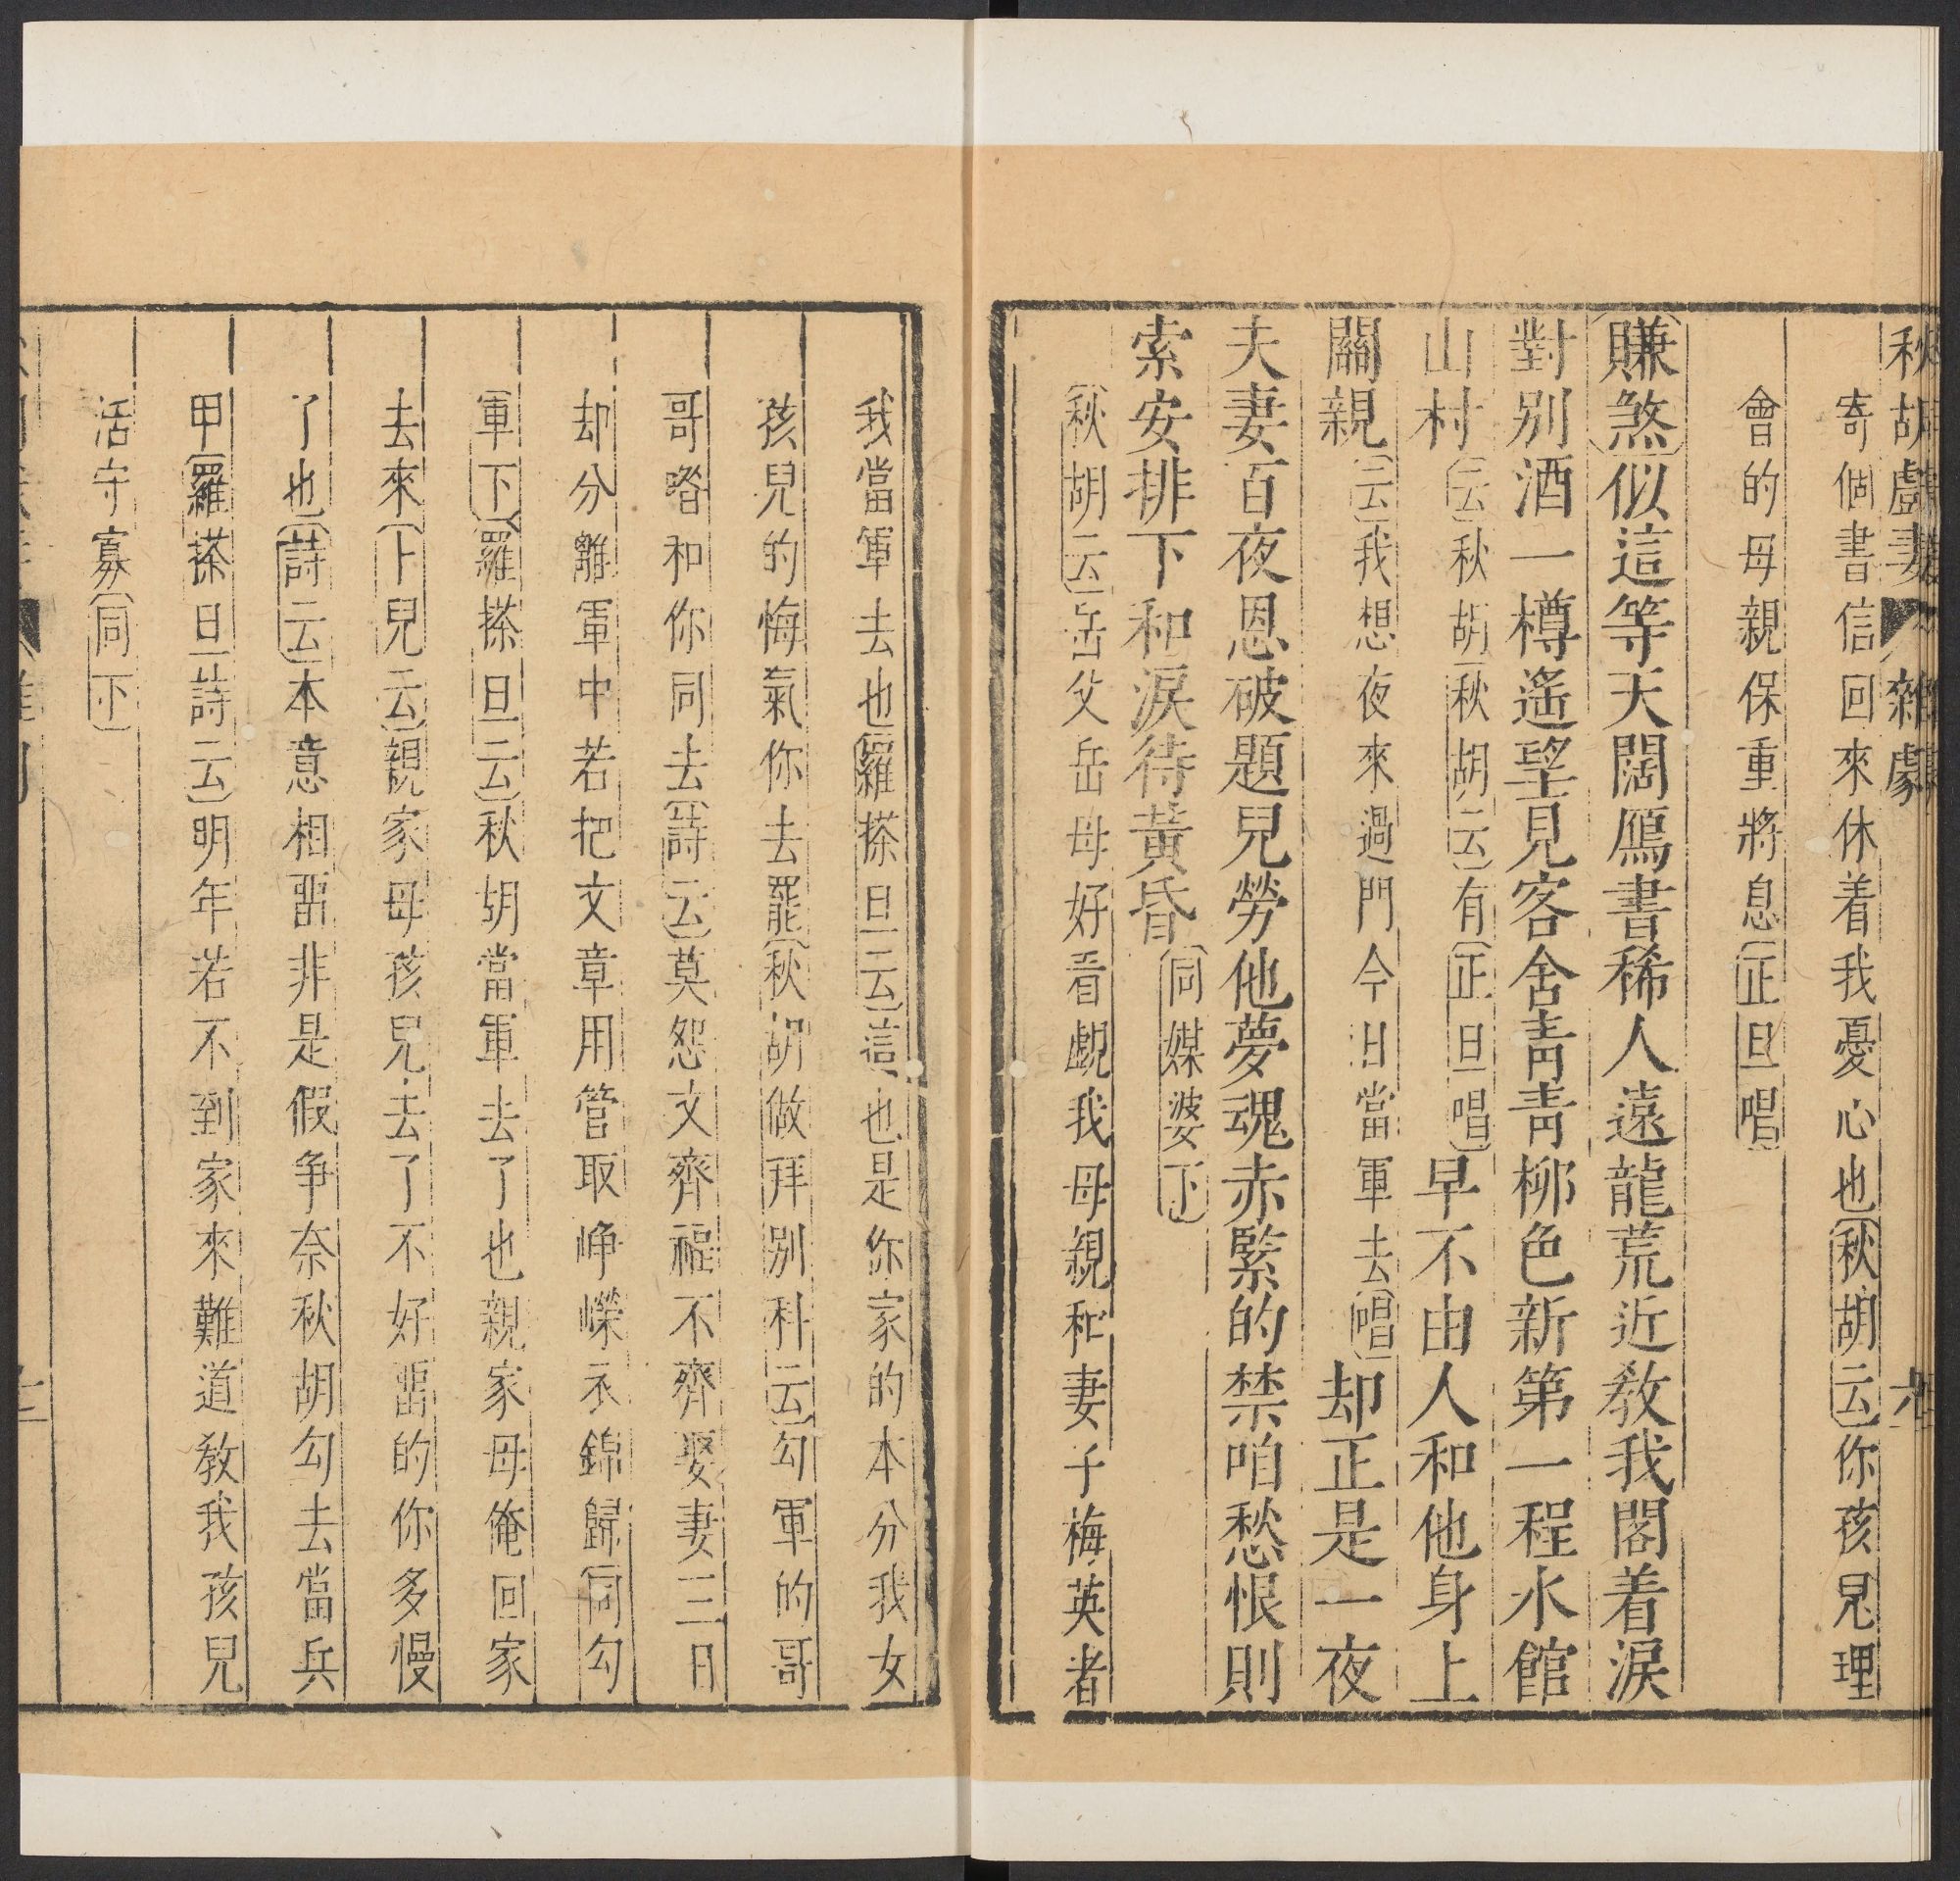 秋胡戲妻 雜劇 九
寄個書信回來休着我憂心也秋胡云你孩兒理
會的母親保重將息正旦唱
賺煞似這等天闊鴈書稀人遠龍荒近敎我閣着淚
對別酒一樽遙望見客舍靑靑柳色新第一程水館
山村云秋胡秋胡云有正旦唱早不由人和他身上
關親云我想夜來過門今日當軍去唱却正是一夜
夫妻百夜恩破題兒勞他夢魂赤緊的禁咱愁恨則
索安排下和淚待黃昏同媒婆下
秋胡云岳父岳母好看覷我母親和妻子梅英者
我當軍去也羅搽旦云這也是你家的本分我女
孩兒的悔氣你去罷秋胡做拜別科云勾軍的哥
哥喒和你同去詩云莫怨文齊福不齊娶妻三日
却分離軍中若把文章用管取崢嶸衣錦歸同勾
軍下羅搽旦云秋胡當軍去了也親家母俺回家
去來卜兒云親家母孩兒去了不好畱的你多慢
了也詩云本意相畱非是假爭奈秋胡勾去當兵
甲羅搽旦詩云明年若不到家來難道敎我孩兒
活守寡同下